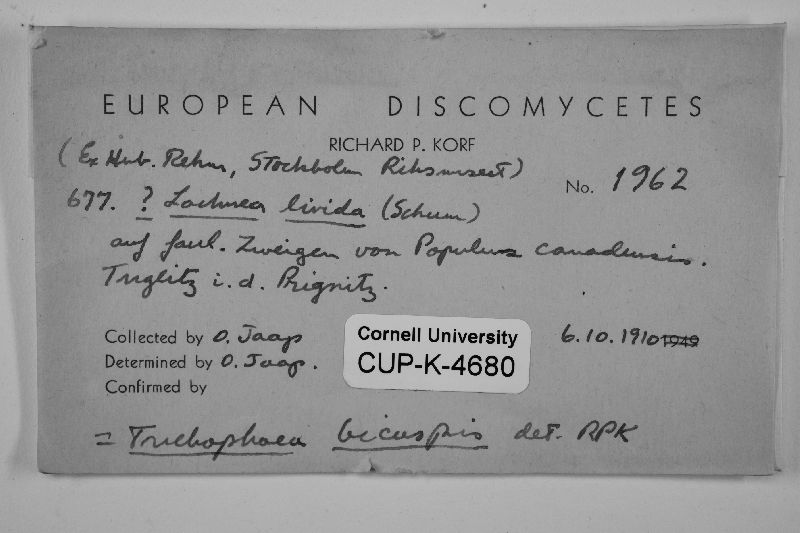 EUROPEAN DISCOMYCETES
RICHARD P. KORF
(Ex Herb. Rehm, Stockholm Riksmuseet)
No. 1962
677. ? Lachnea livida (Schum)
auf faul. Zweigen von Populus canadensis.
Triglitz i. d. Prignitz.
Collected by O. Jaap 6.10.1910 1949
Determined by O. Jaap.
Confirmed by
Cornell University
CUP-K-4680
= Trichophaea bicuspis det. RPK